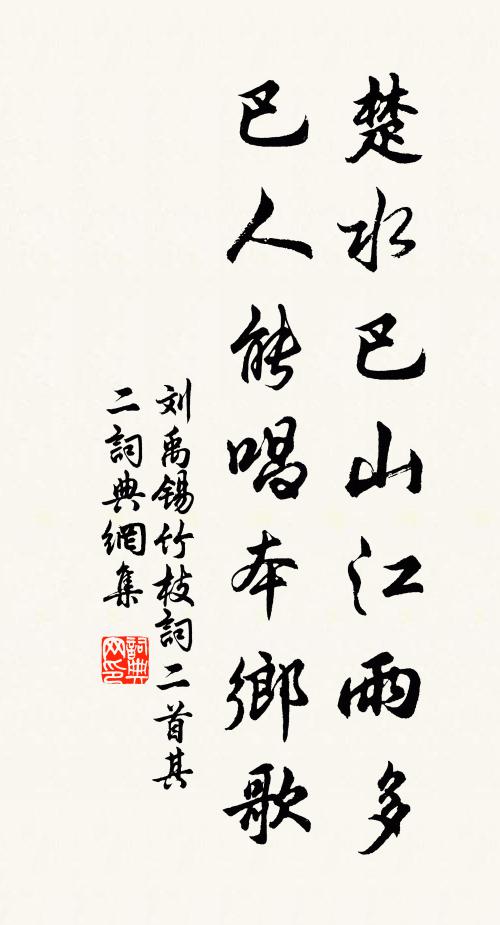 楚水巴山江雨多
巴人能唱本鄉歌
刘禹锡竹枝詞二首其
二詞典網集
詞典
网印